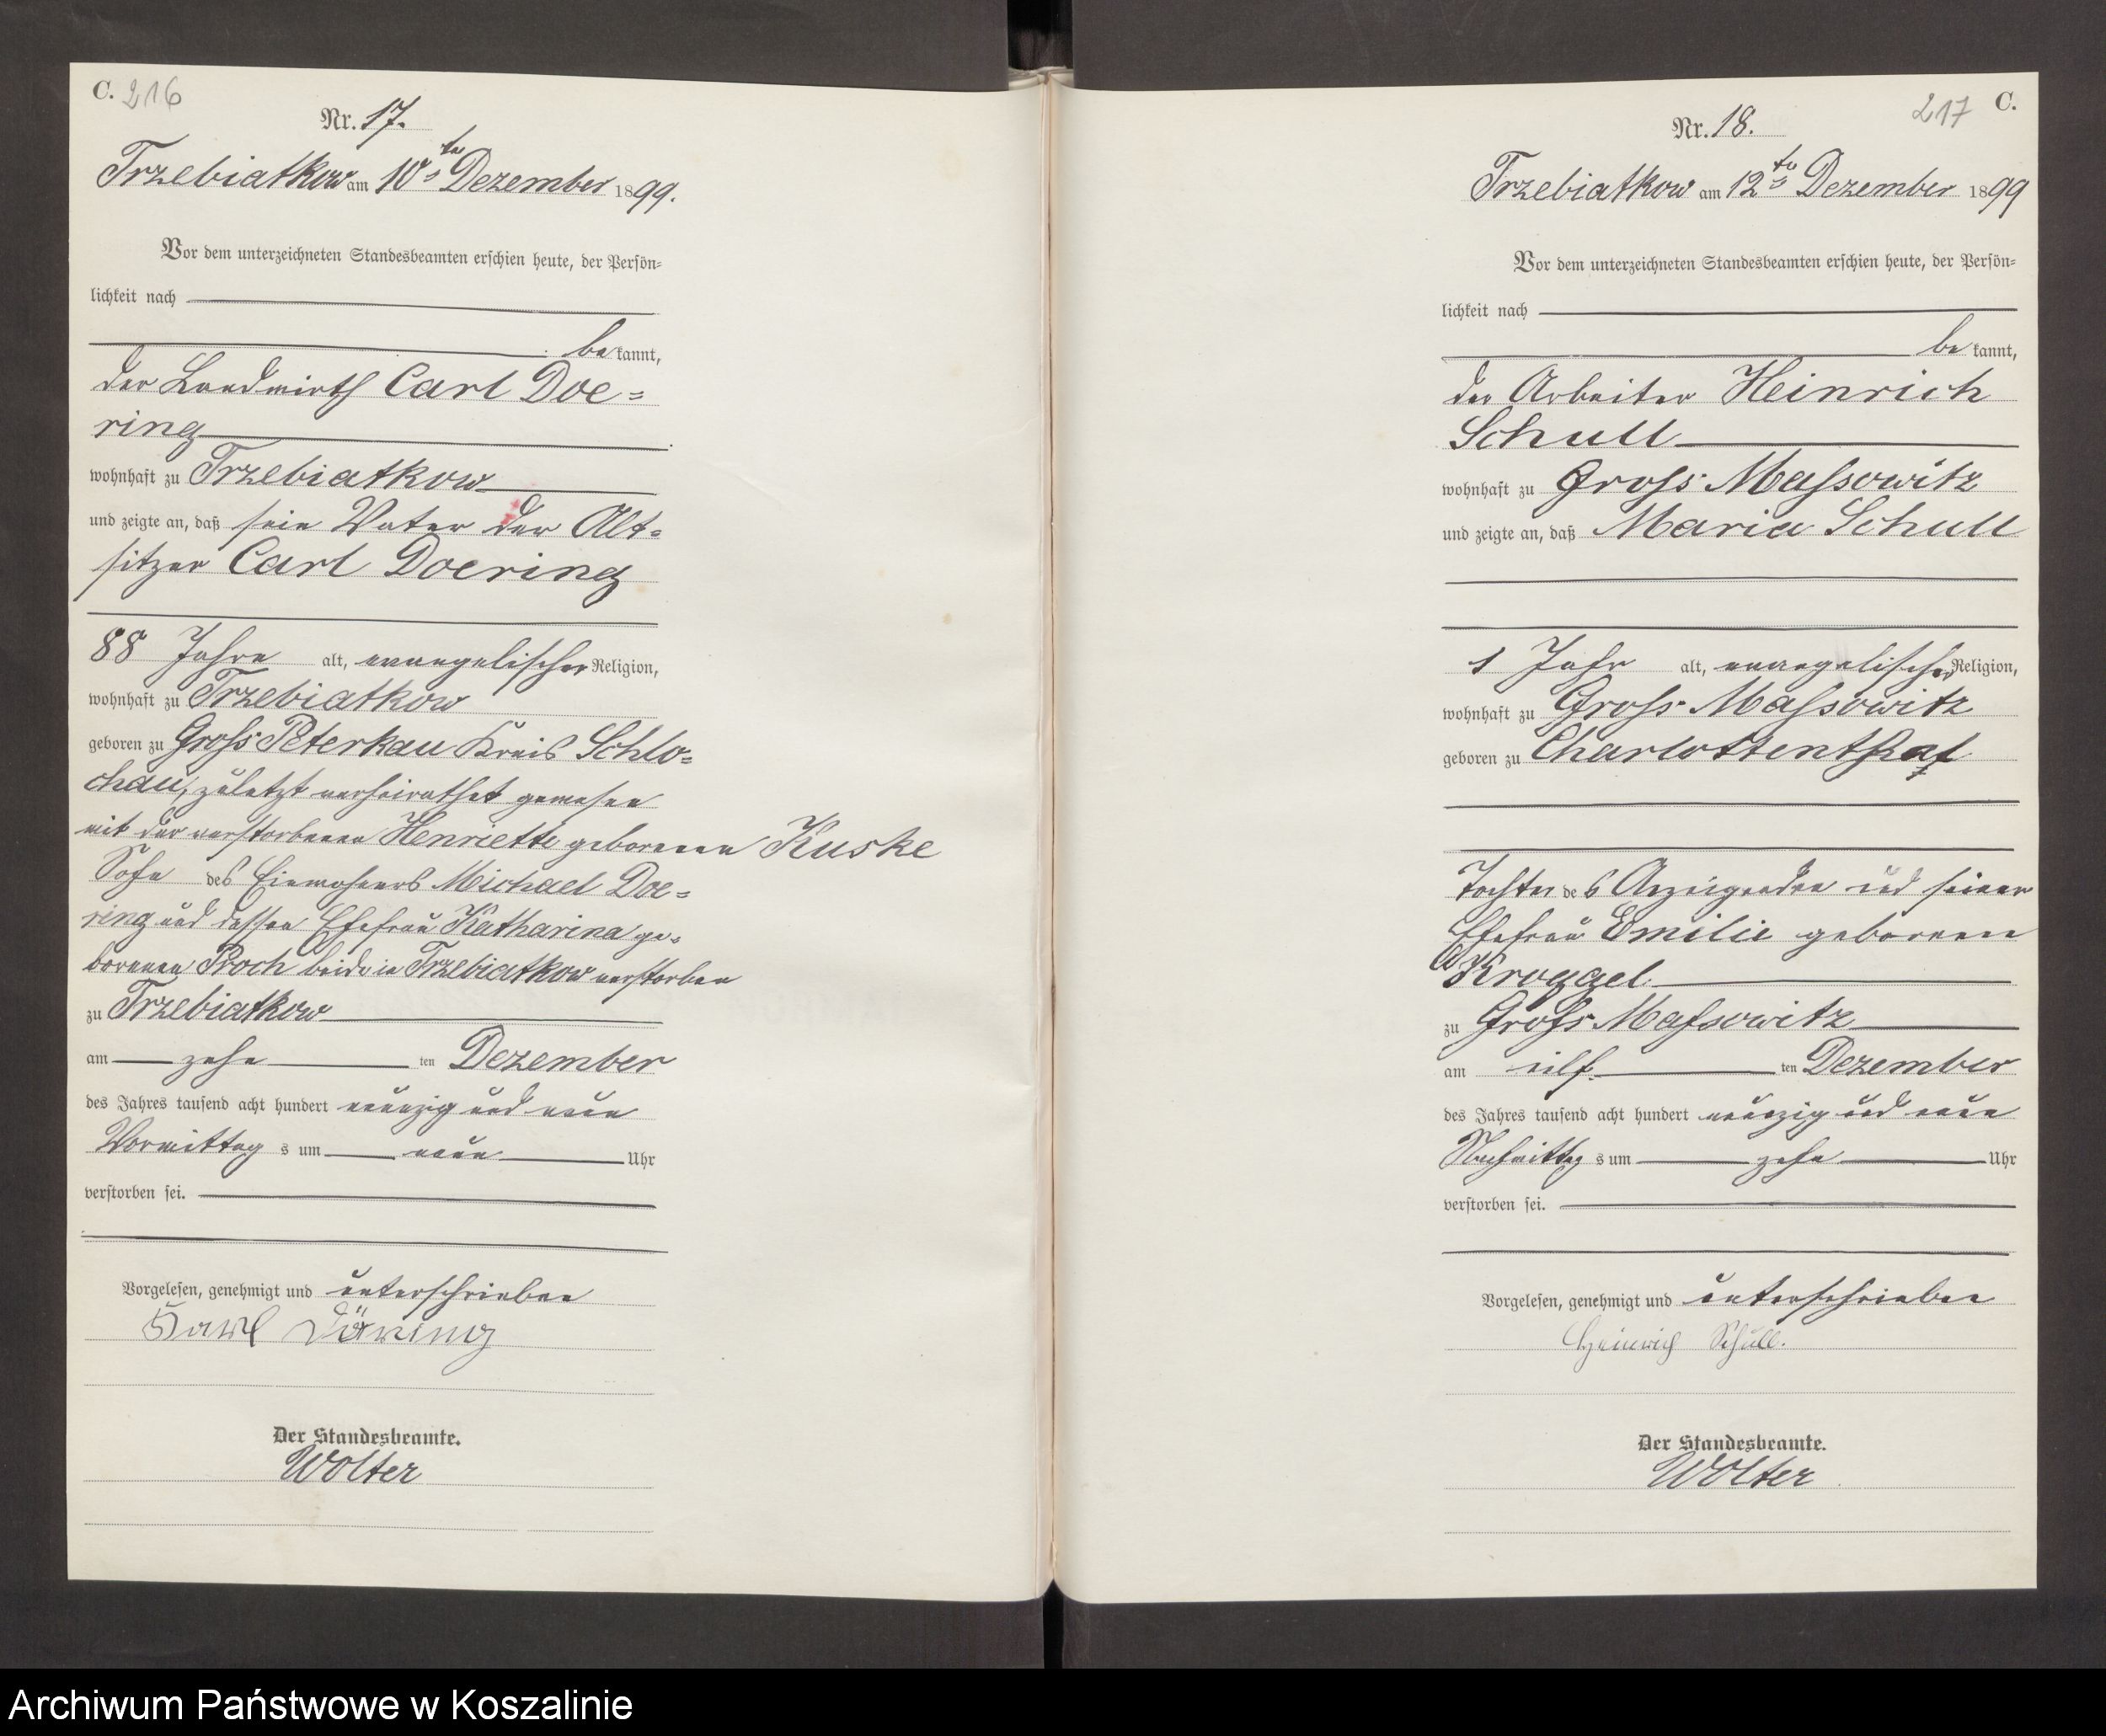 C. 216
Nr. 17.
Trzebiatkow am 10ten Dezember 1899.
Vor dem unterzeichneten Standesbeamten erschien heute, der Persön-
lichkeit nach
bekannt,
der Landwirth Carl Doe=
ring
wohnhaft zu Trzebiatkow
und zeigte an, daß sein Vater der Alt=
sitzer Carl Doering
88 Jahre alt, evangelischer Religion,
wohnhaft zu Trzebiatkow
geboren zu Gross Peterkau Kreis Schlo=
chau, zuletzt verheirathet gewesen
mit der verstorbenen Henriette geborenen Kuske
Sohn des Einwohners Michael Doe=
ring und dessen Ehefrau Katharina ge=
borenen Proch beide in Trzebiatkow verstorben
zu Trzebiatkow
am zehn ten Dezember
des Jahres tausend acht hundert neunzig und neun
Vormittag s um neun Uhr
verstorben sei.
Vorgelesen, genehmigt und unterschrieben
Karl Döring
Der Standesbeamte.
Wolter
217 C.
Nr. 18.
Trzebiatkow am 12ten Dezember 1899
Vor dem unterzeichneten Standesbeamten erschien heute, der Persön-
lichkeit nach
bekannt,
der Arbeiter Heinrich
Schull
wohnhaft zu Gross Massowitz
und zeigte an, daß Maria Schull
1 Jahr alt, evangelischer Religion,
wohnhaft zu Gross Massowitz
geboren zu Charlottenthal
Tochter des Anzeigenden und seiner
Ehefrau Emilie geborenen
Kroggel
zu Gross Massowitz
am eilf ten Dezember
des Jahres tausend acht hundert neunzig und neun
Nachmittag s um zehn Uhr
verstorben sei.
Vorgelesen, genehmigt und unterschrieben
Heinrich Schull.
Der Standesbeamte.
Wolter
Archiwum Państwowe w Koszalinie